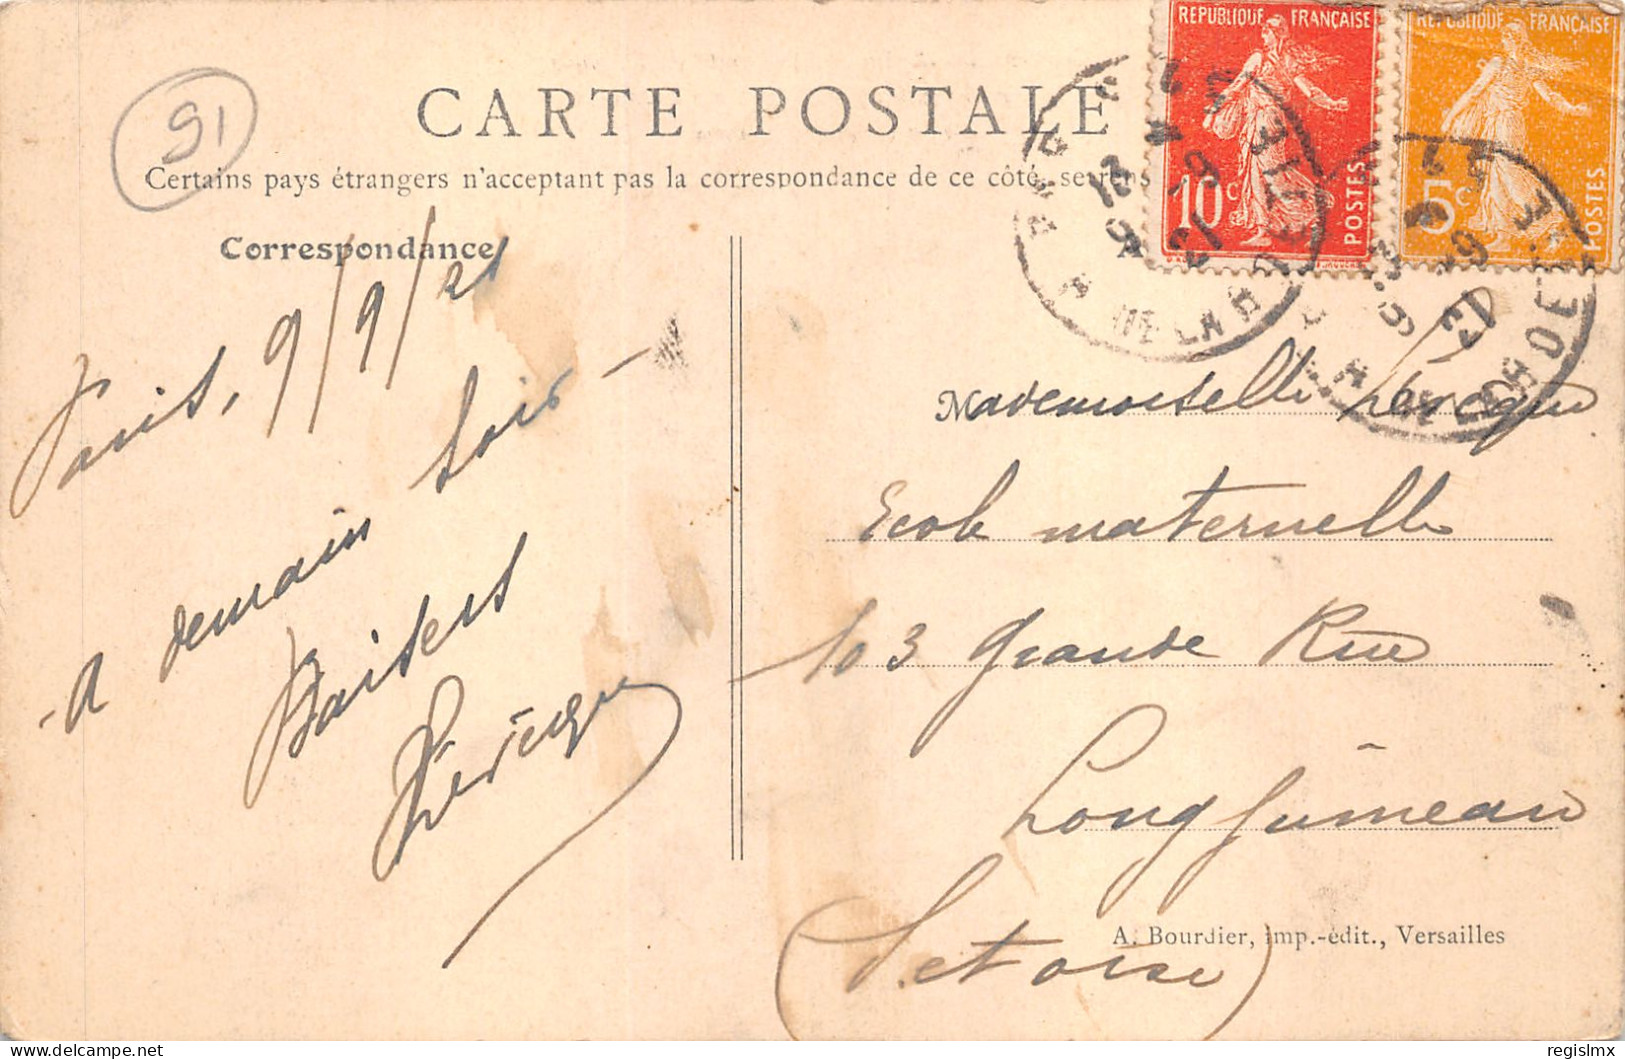 91
CARTE POSTALE
Certains pays étrangers n'acceptant pas la correspondance de ce côté, se rens
Correspondance
Paris, 9/9/21
A demain soir -
Baisers
Lévêque
REPUBLIQUE FRANÇAISE
10c
POSTES
REPUBLIQUE FRANÇAISE
5c
POSTES
A
Mademoiselle Lévêque
Ecole maternelle
103 Grande Rue
Longjumeau
(S. et Oise)
A. Bourdier, imp.-édit., Versailles
regislmx